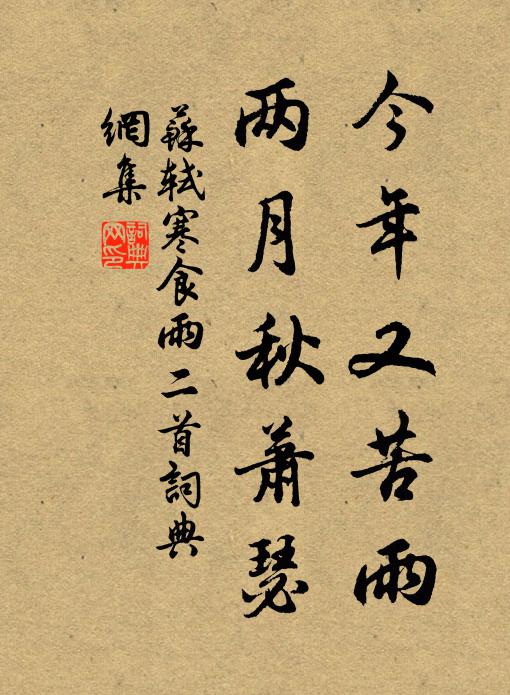 今年又苦雨
两月秋萧瑟
蘇軾寒食雨二首詞典
網集
詞典
网印